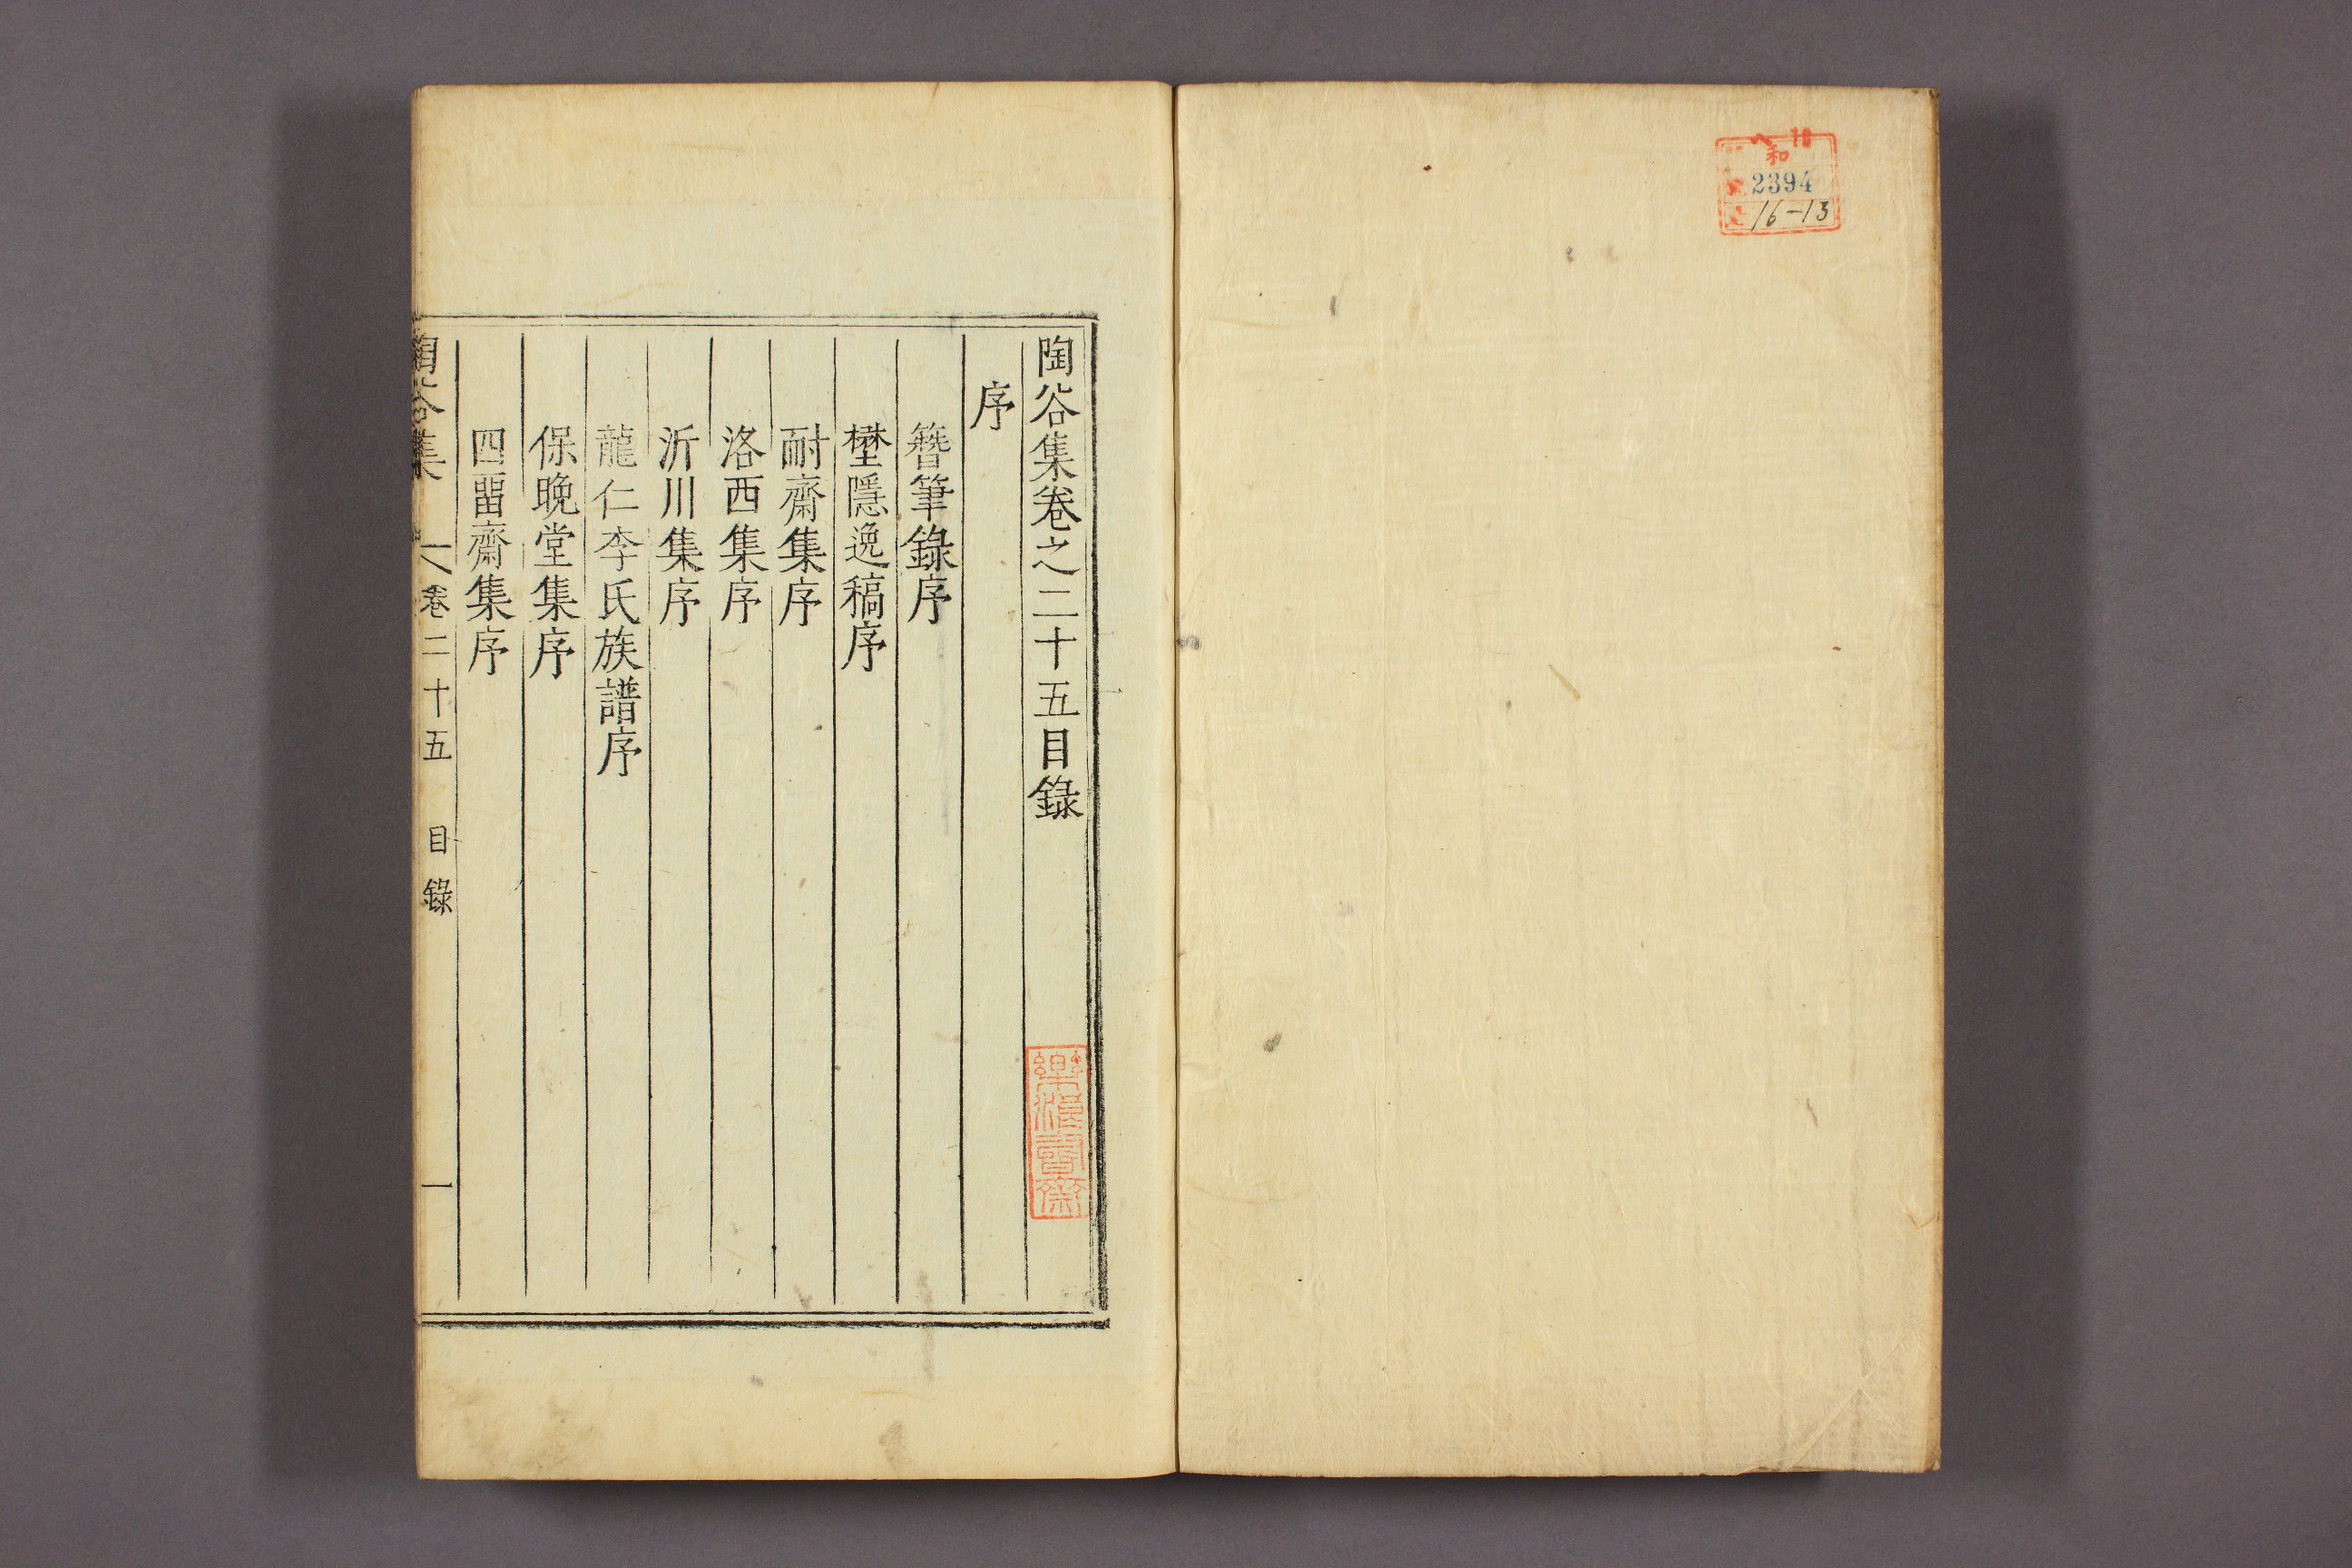 和
2394
16-13
陶谷集卷之二十五目錄
序
簪筆錄序
壄隱逸稿序
耐齋集序
洛西集序
沂川集序
龍仁李氏族譜序
保晚堂集序
四畱齋集序
陶谷集 卷二十五 目錄 一